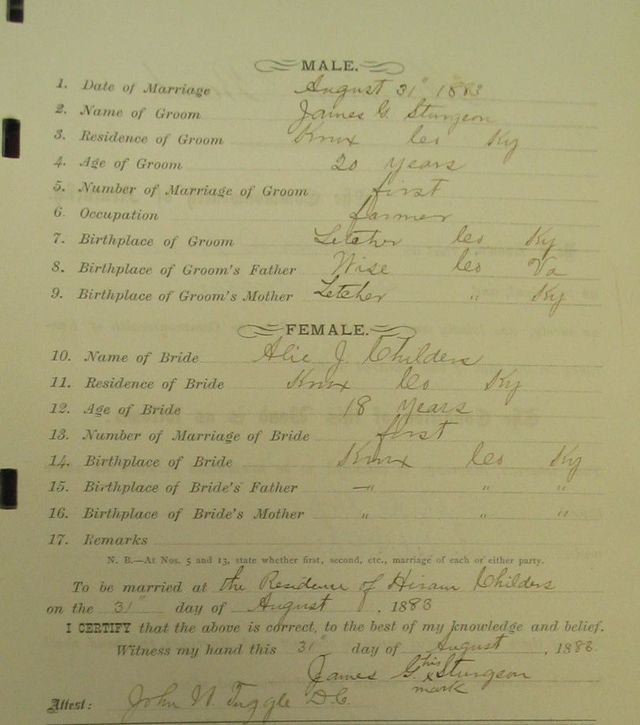 MALE.
1. Date of Marriage August 31" 1883
2. Name of Groom James G. Sturgeon
3. Residence of Groom Knox Co Ky
4. Age of Groom 20 years
5. Number of Marriage of Groom first
6. Occupation farmer
7. Birthplace of Groom Letcher Co Ky
8. Birthplace of Groom's Father Wise Co Va
9. Birthplace of Groom's Mother Letcher " Ky
FEMALE.
10. Name of Bride Alie J. Childers
11. Residence of Bride Knox Co Ky
12. Age of Bride 18 years
13. Number of Marriage of Bride first
14. Birthplace of Bride Knox Co Ky
15. Birthplace of Bride's Father " " "
16. Birthplace of Bride's Mother " " "
17. Remarks
N. B.—At Nos. 5 and 13, state whether first, second, etc., marriage of each or either party.
To be married at the Residence of Hiram Childers
on the 31" day of August, 1883
I CERTIFY that the above is correct, to the best of my knowledge and belief.
Witness my hand this 31" day of August, 1883
James G. his x mark Sturgeon
Attest: John W Tuggle D.C.